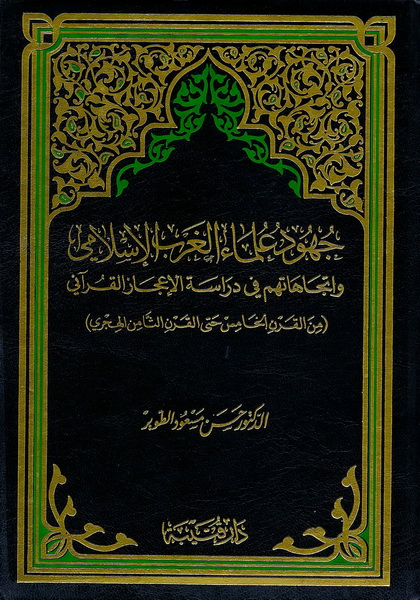 جهود علماء الغرب الإسلامي
واتجاهاتهم في دراسة الإعجاز القرآني
(من القرن الخامس حتى القرن الثامن الهجري)
الدكتور حسن مسعود الطوير
دار قتيبة